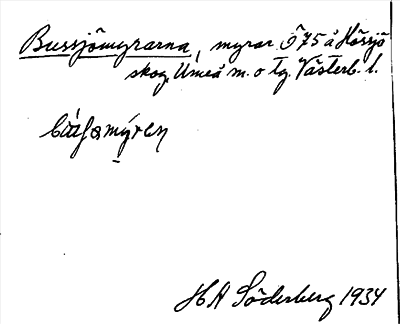 Bussjömyrarna, myrar Ö 75 å Hössjö
skog, Umeå m. o tg. Västerb. l.
H A Söderberg 1934